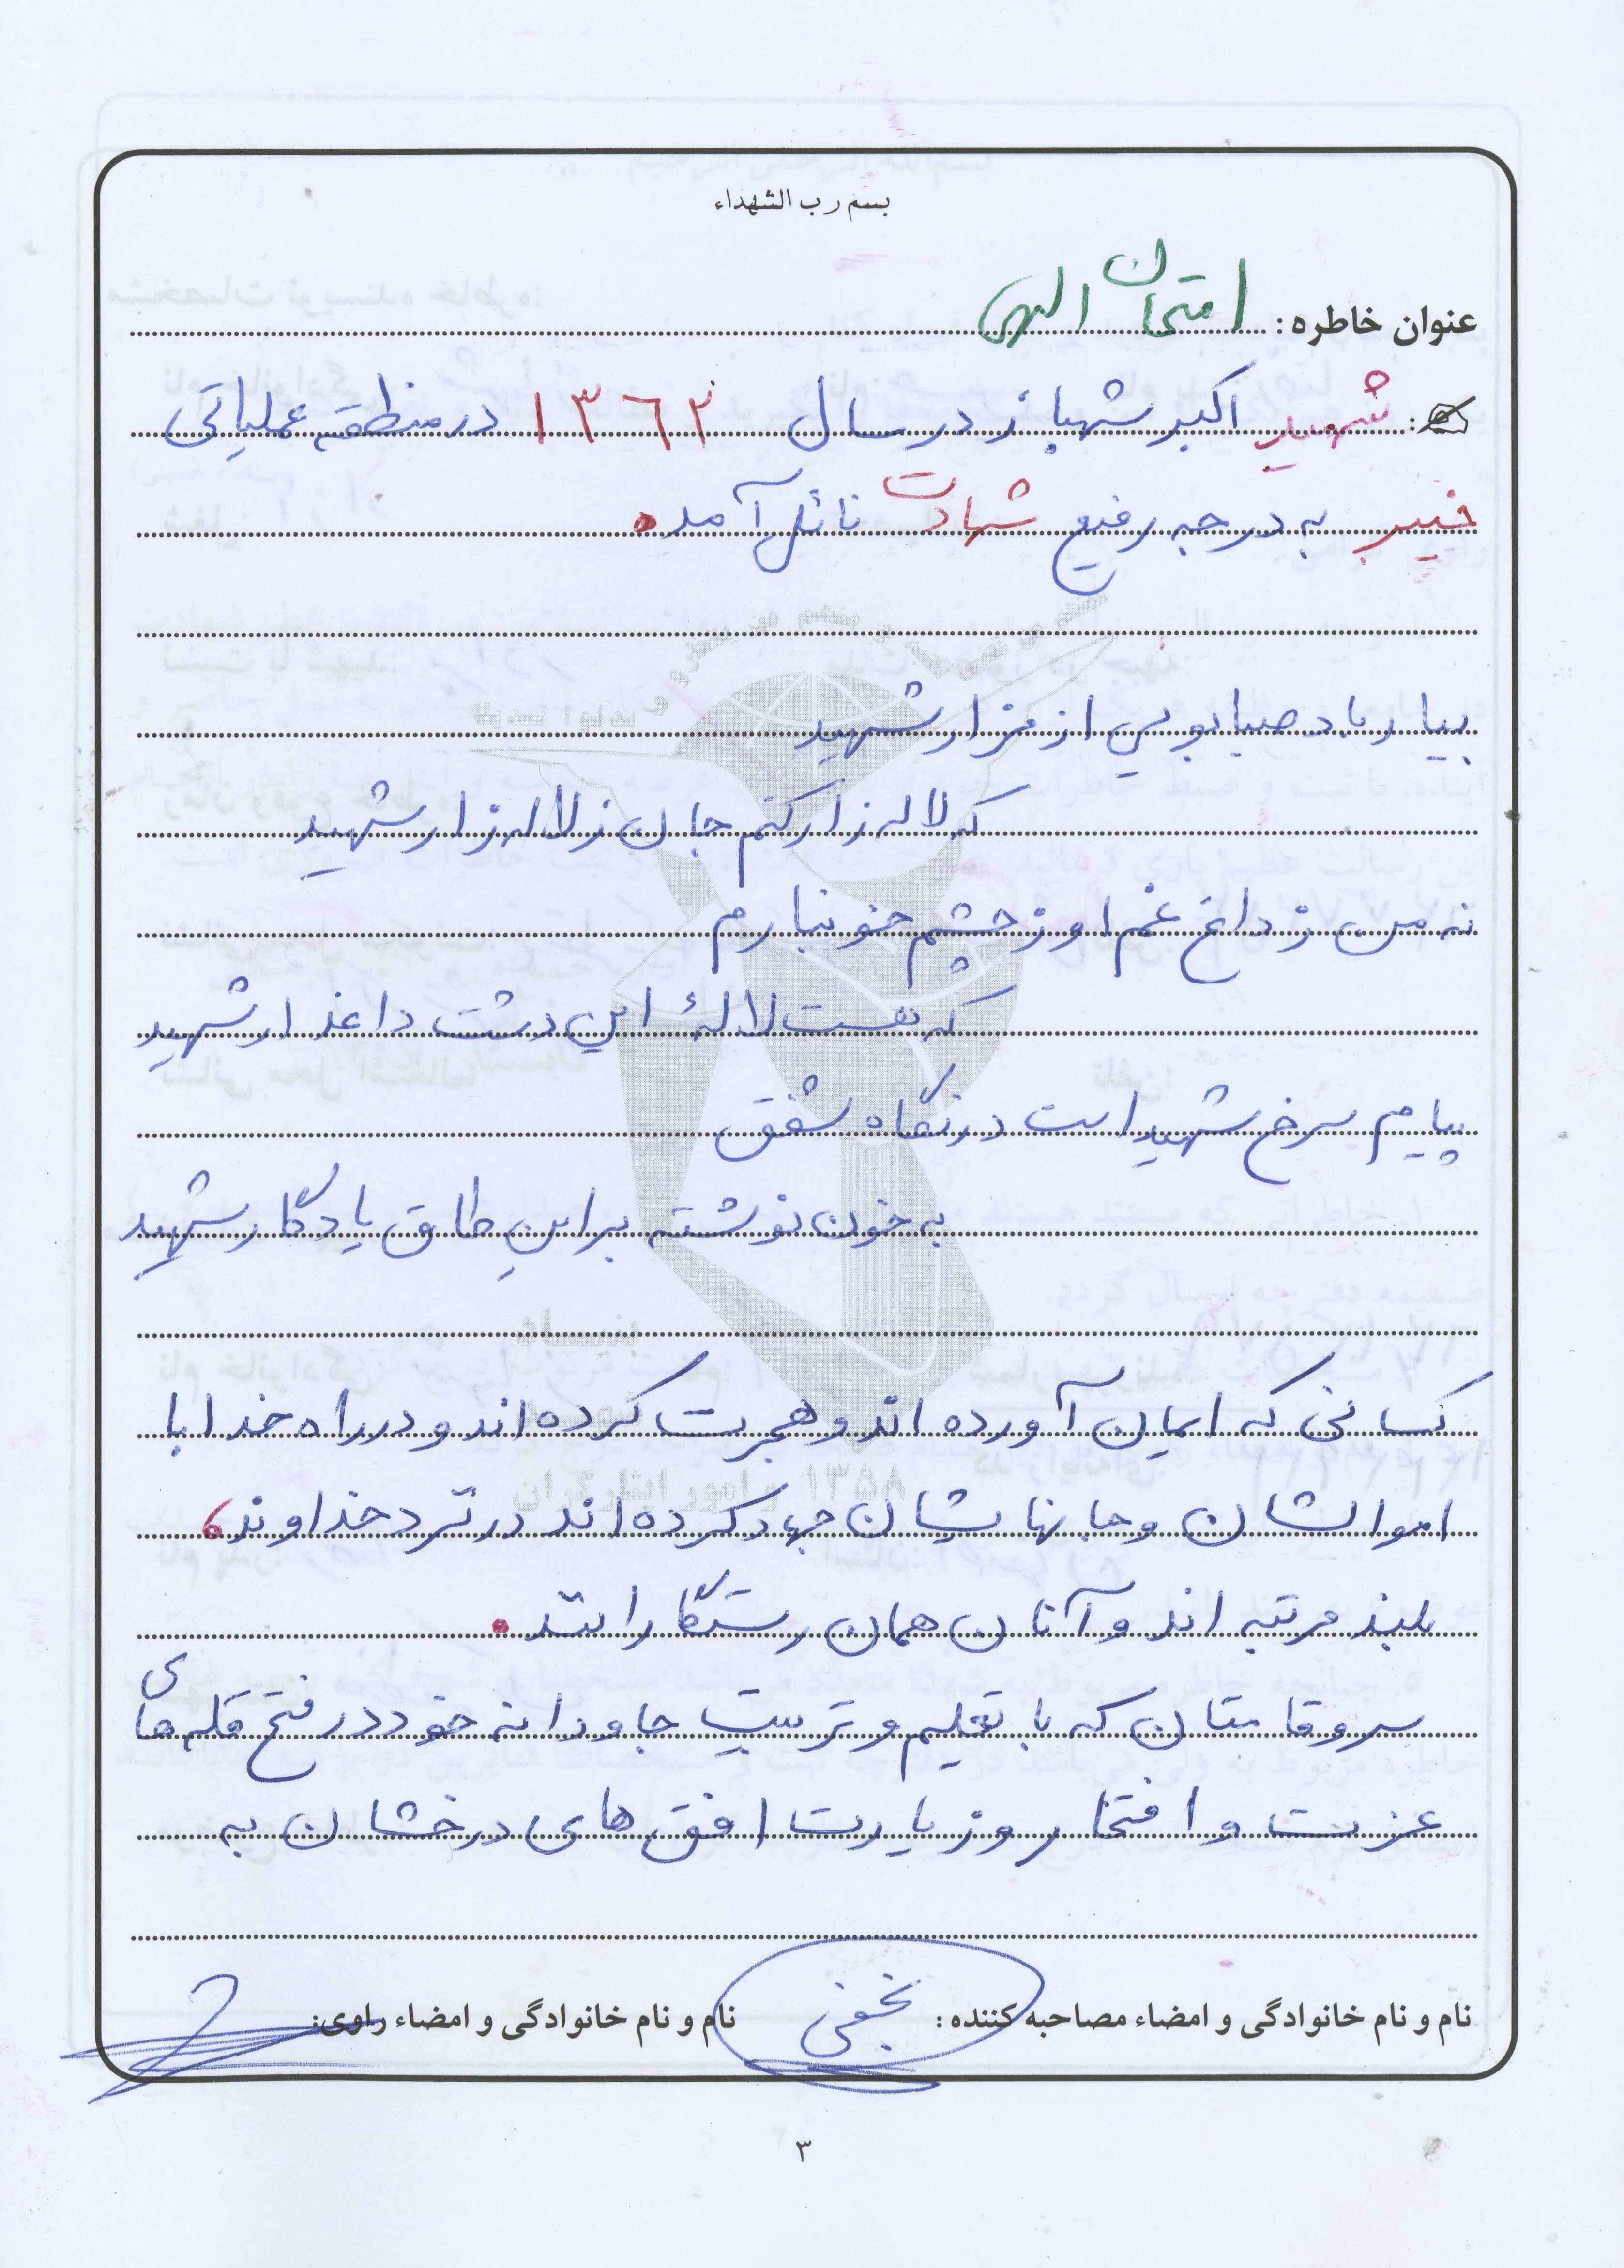 بسم رب الشهداء
عنوان خاطره: امتحان الهی
شهید اکبر شهباز در سال ۱۳۶۲ در منطقه عملیاتی
خیبر به درجه رفیع شهادت نائل آمد.
بیا رباد صبا بویی از مزار شهید
که لاله زار کنم جان ز لاله زار شهید
نه من ز داغ غم او ز چشم خونبارم
که هست لالهٔ این دشت داغدار شهید
پیام سرخ شهید است در نگاه شفق
به خون نوشته بر این طاق یادگار شهید
کسانی که ایمان آورده اند و هجرت کرده اند و در راه خدا با
اموالشان و جانهایشان جهاد کرده اند در نزد خداوند،
بلند مرتبه اند و آنان همان رستگارانند.
سرو قامتان که با تعلیم و تربیت جاودانه خود در فتح قله های
عزت و افتخار و زیارت افق های درخشان به
نام و نام خانوادگی و امضاء مصاحبه کننده: نجفی
نام و نام خانوادگی و امضاء راوی:
۳